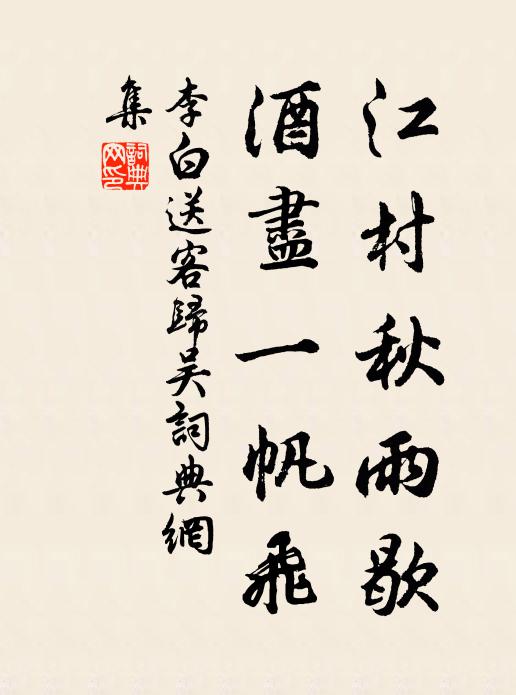 江村秋雨歇
酒盡一帆飛
李白送客歸吴詞典網
集
詞典
网印